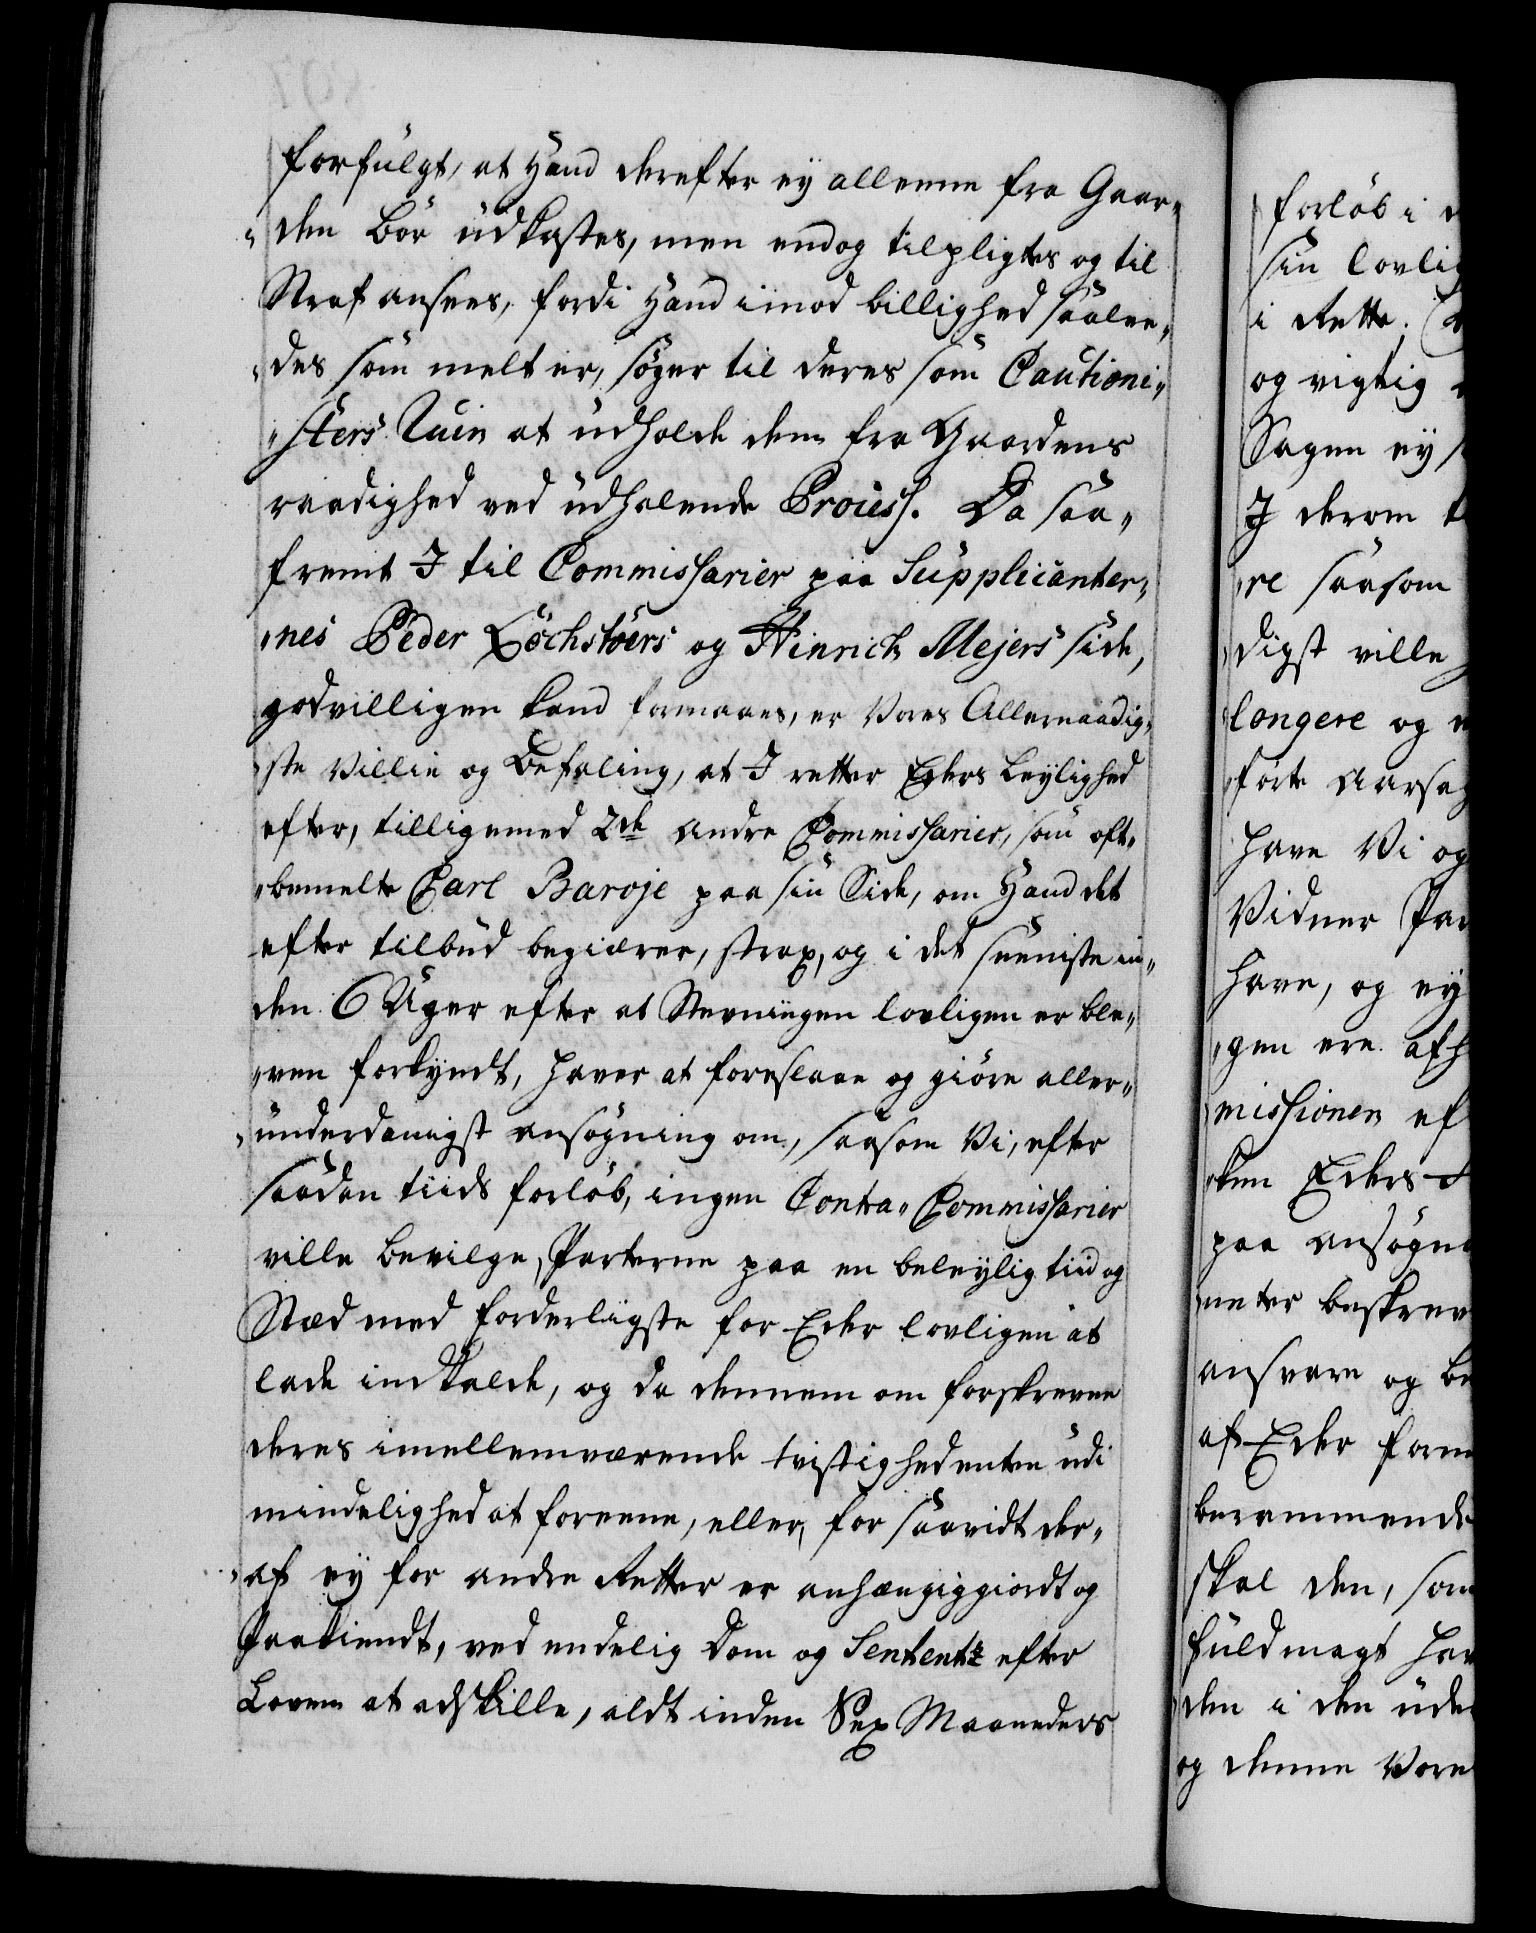 forfulgt, at Hand derefter ey alleene fra Gaar-
den bör udkastes, men endog tilpligtes og til
Straf ansees, fordi Hand imod billighed saalee-
des som melt er, söger til deres som Cautioni-
sters Ruin at udholde dem fra Gaardens
raadighed ved udhalende Process. Da saa-
fremt I til Commissarier paa Supplicanter-
nes Peder Löchstöers og Hinrich Mejers side,
godvilligen kand formaaes, er Vores Allernaadig-
ste Villie og Befaling, at I retter Eders leylighed
efter, tilligemed 2de andre Commissarier, som oft-
bemelte Carl Baroje paa sin Side, om Hand det
efter tilbud begiærer, strax, og i det seeniste in-
den 6 Uger efter at Stevningen lovligen er ble-
ven forkyndt, haver at foreslaae og giöre aller-
underdanigst ansögning om, saasom Vi, efter
saadan tiids forlöb, ingen Contra-Commissarier
ville bevilge, Parterne paa en beleylig tiid og
Stæd med forderligste for Eder lovligen at
lade indkalde, og da dennem om forskrevne
deres imellemværende tvistighed enten udi
mindelighed at foreene, eller, for saavidt der-
af ey for andre Retter er anhængiggiordt og
paakiendt, ved endelig dom og Sententz efter
Loven at adskille, aldt inden Sex Maaneders
forlöb i
sin lovlig
i Rette.
og rigtig
Sagen ey
I derom
re saasom
digst ville
longere og
förte Aarsag
have Vi og
Vidner Par
have, og ey
gen ere afh
missionen ef
ken Eders
paa ansögn
neter beskrev
ansvare og be
af Eder form
berammende
skal den, som
fuldmagt hav
den i den ude
og denne Vore